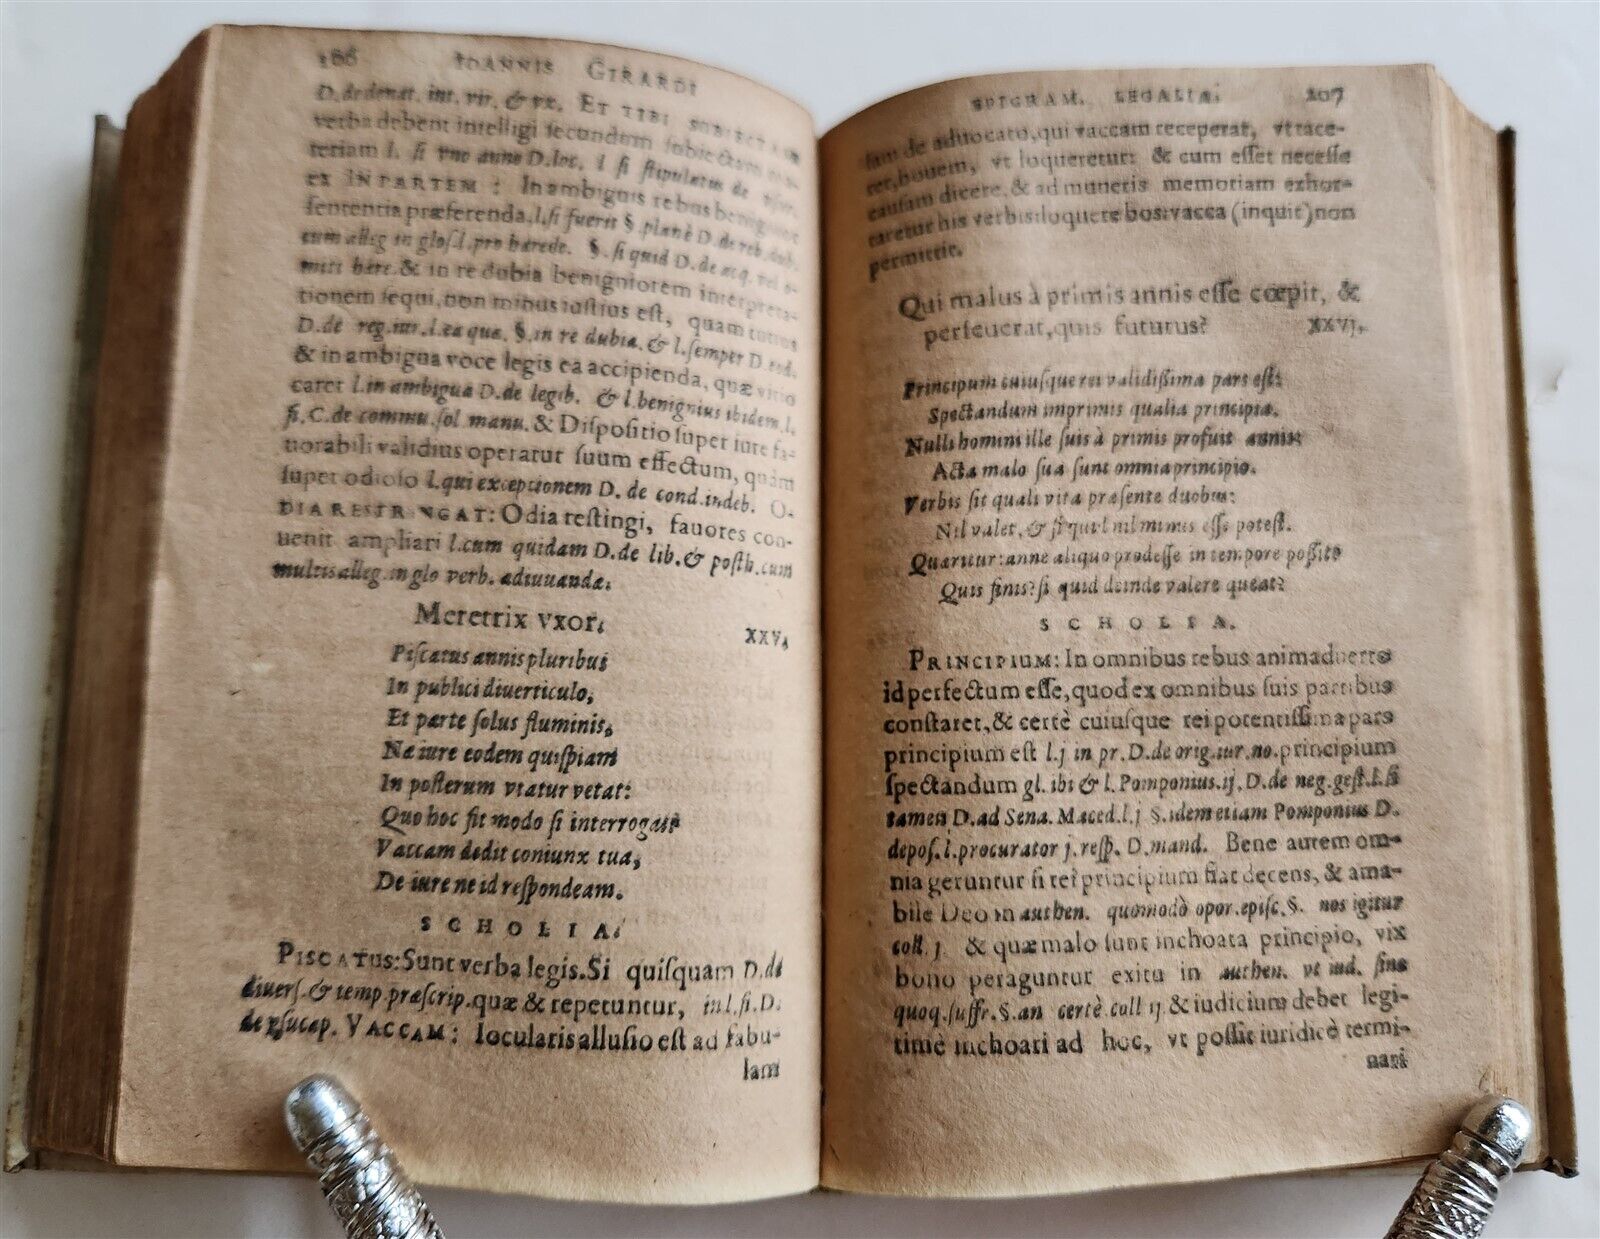 166 IOANNIS GIRARDI
D. de donat. int. vir. & vx. ET TIBI SUBIECTAM
verba debent intelligi secundum subiectam ma-
teriam l. si vno anno D. loc. l si stipulatus de vsur.
ex IN PARTEM: In ambiguis rebus benignior
sententia præferenda. l. si fuerit §. planè D. de reb. dub.
cum alleg in glos. l. pro hærede. §. si quid D. de acq. vel o-
mitt hære. & in re dubia benigniorem interpreta-
tionem sequi, non minus iustius est, quam tutius
D. de reg. iur. l. ea quæ. §. in re dubia. & l. semper D. eod.
& in ambigua voce legis ea accipienda, quæ vitio
caret l. in ambigua D. de legib. & l. benignius ibidem. l.
si. C. de commu. sol manu. & Dispositio super iure fa-
uorabili validius operatur suum effectum, quàm
super odioso l. qui exceptionem D. de cond. indeb. O-
DIA RESTRINGAT: Odia restingi, fauores con-
uenit ampliari l. cum quidam D. de lib. & posth. cum
multis alleg. in glo verb. adiuuanda.
Meretrix vxor. XXV.
Piscatus annis pluribus
In publici diuerticulo,
Et parte solus fluminis,
Ne iure eodem quispiam
In posterum vtatur vetat:
Quo hoc fit modo si interrogate
Vaccam dedit coniunx tua,
De iure ne id respondeam.
SCHOLIA.
PISCATUS: Sunt verba legis. Si quisquam D. de
diuers. & temp. præscrip. quæ & repetuntur, in l. si. D.
de vsucap. VACCAM: Iocularis allusio est ad fabu-
lam
EPIGRAM. LEGALIA. 207
lam de aduocato, qui vaccam receperat, vt tace-
ret, bouem, vt loqueretur: & cum esset necesse
causam dicere, & ad muneris memoriam exhor-
taretur his verbis: loquere bos: vacca (inquit) non
permittit.
Qui malus à primis annis esse cœpit, &
perseuerat, quis futurus? XXVJ.
Principum cuiusque rei validissima pars est:
Spectandum imprimis qualia principia.
Nulli homini ille suis à primis profuit annis:
Acta malo sua sunt omnia principio.
Verbis sit quali vita præsente duobus:
Nil valet, & si quid nil minus esse potest.
Quæritur: anne aliquo prodesse in tempore possit?
Quis finis? si quid deinde valere queat?
SCHOLIA.
PRINCIPIUM: In omnibus rebus animaduerto
id perfectum esse, quod ex omnibus suis partibus
constaret, & certè cuiusque rei potentissima pars
principium est l. j in pr. D. de orig. iur. no. principium
spectandum gl. ibi & l. Pomponius. ij. D. de neg. gest. l. si
tamen D. ad Sena. Maced. l. j §. idem etiam Pomponius D.
depos. l. procurator j. resp. D. mand. Bene autem om-
nia geruntur si rei principium fiat decens, & ama-
bile Deo in authen. quomodò opor. episc. §. nos igitur
coll. j. & quæ malo sunt inchoata principio, vix
bono peraguntur exitu in authen. vt iud. sine
quoq. suffr. §. an certè coll ij. & iudicium debet legi-
timè inchoari ad hoc, vt possit iuridicè termi-
nari